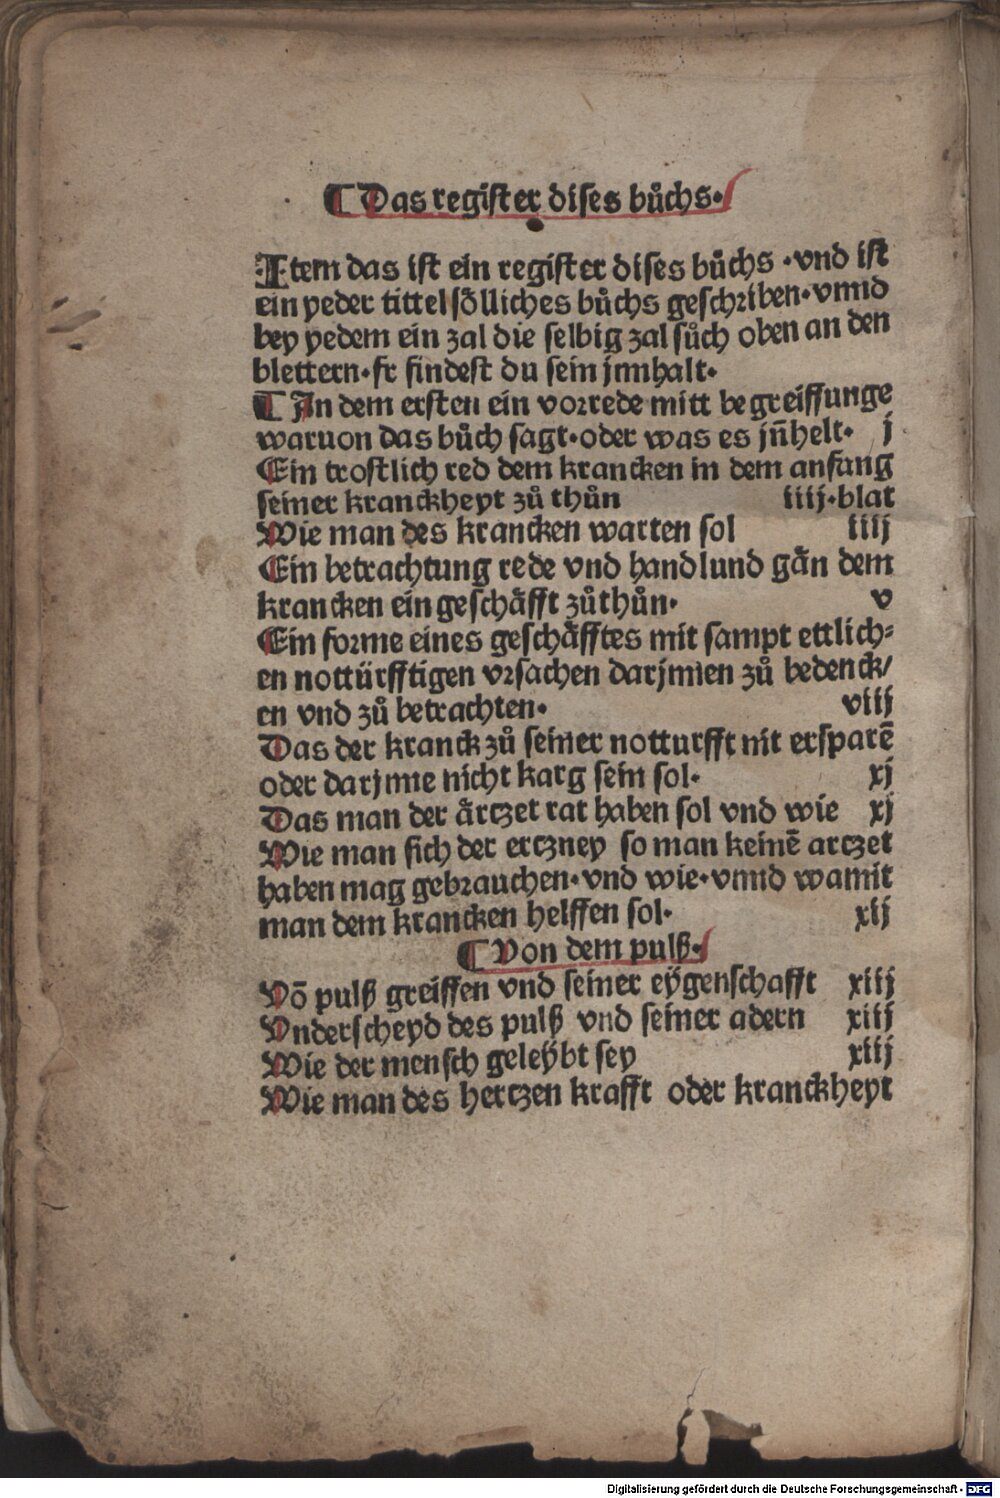 ¶ Das register dises bůchs·
Item das ist ein register dises bůchs ·vnd ist
ein yeder tittel sölliches bůchs geschriben·vnnd
bey yedem ein zal die selbig zal sůch oben an den
blettern·sr findest du sein jnnhalt·
¶ In dem ersten ein vorrede mitt begreiffunge
waruon das bůch sagt·oder was es jn̄helt· j
Ein trostlich red dem krancken in dem anfang
seiner kranckheyt zů thůn iiij·blat
Wie man des krancken warten sol iiij
Ein betrachtung rede vnd handlund gän dem
krancken ein geschäfft zůthůn· v
Ein forme eines geschäfftes mit sampt ettlich⸗
en nottürfftigen vrsachen darjnnen zů bedenck/
en vnd zů betrachten· viij
Das der kranck zů seiner notturfft nit ersparē
oder darjnne nicht karg sein sol· xj
Das man der ärtzet rat haben sol vnd wie xj
Wie man sich der ertzney so man keinē artzet
haben mag gebrauchen·vnd wie·vnnd wamit
man dem krancken helffen sol· xij
¶ Von dem pulß·
Võ pulß greiffen vnd seiner eÿgenschafft xiij
Vnderscheyd des pulß vnd seiner adern xiij
Wie der mensch geleÿbt sey xiij
Wie man des hertzen krafft oder kranckheyt
Digitalisierung gefördert durch die Deutsche Forschungsgemeinschaft - DFG